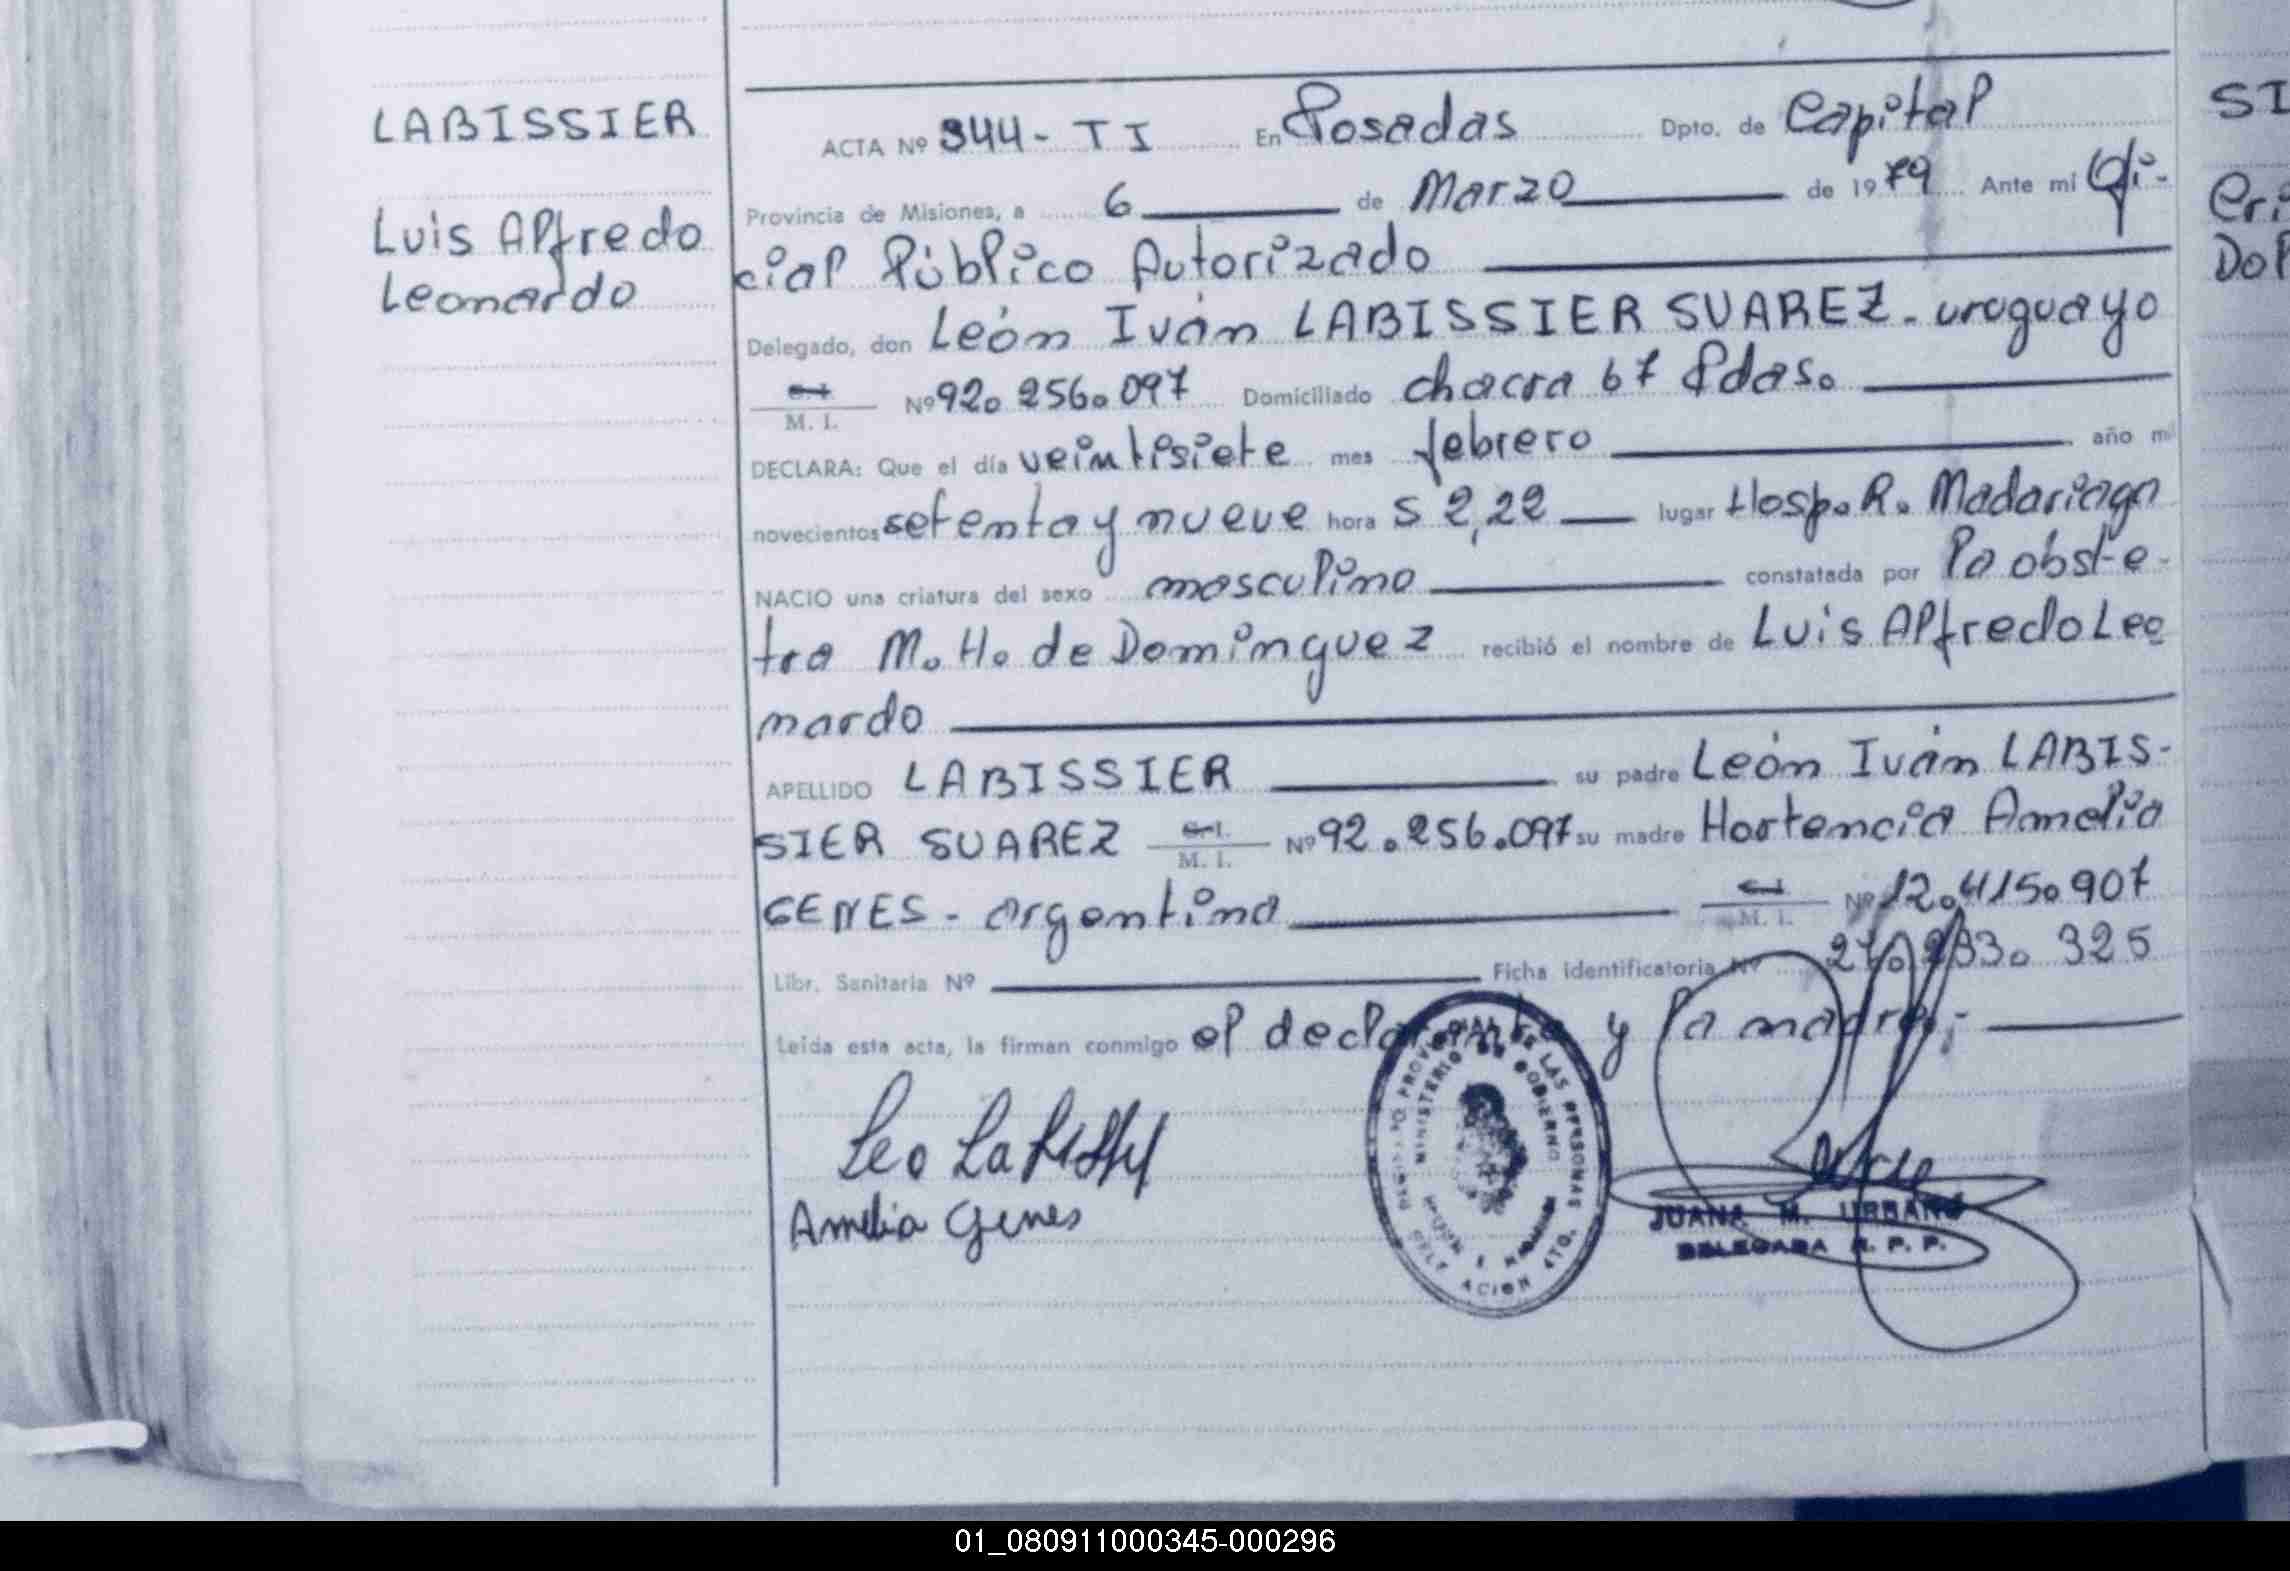 LABISSIER
Luis Alfredo
Leonardo
ACTA Nº 344- TI En Posadas Dpto. de Capital
Provincia de Misiones, a 6 de Marzo de 1979 Ante mi Ofi-
cial Público Autorizado
Delegado, don León Iván LABISSIER SUAREZ - uruguayo
M. I. Nº 92.256.097 Domiciliado chacra 67 Pdas.
DECLARA: Que el día veintisiete mes febrero año mil
novecientos setenta y nueve hora s 2,22 lugar Hosp. R. Madariaga
NACIO una criatura del sexo masculino constatada por la obste-
tra M. H. de Dominguez recibió el nombre de Luis Alfredo Leo
nardo
APELLIDO LABISSIER su padre León Iván LABIS-
SIER SUAREZ M. I. Nº 92.256.097 su madre Hortencia Amelia
GENES - argentina M. I. Nº 12.415.907
Libr. Sanitaria Nº Ficha identificatoria Nº 27.233.325
Leida esta acta, la firman conmigo el declarante y la madre.-
Amelia Genes
JUANA M. URBANO
DELEGADA R. P. P.
SI
Cri
Dol
01_080911000345-000296